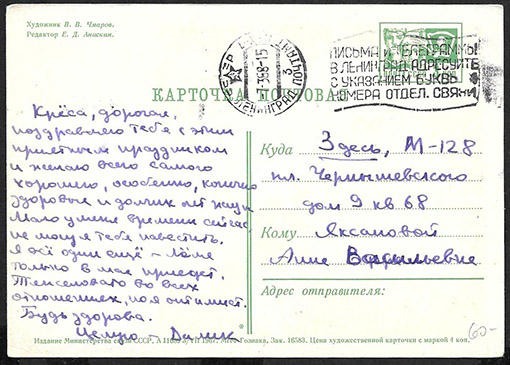 Художник В. В. Чмаров.
Редактор Е. Д. Анискин.
ПИСЬМА И ТЕЛЕГРАММЫ
В ЛЕНИНГРАД АДРЕСУЙТЕ
С УКАЗАНИЕМ БУКВЫ
НОМЕРА ОТДЕЛ. СВЯЗИ
КАРТОЧКА ПОЧТОВАЯ
СССР
ЛЕНИНГРАД ПОЧТАМТ
дорогая,
поздравляю тебя с этим
приятным праздником
и желаю всего самого
хорошего, особенно, конечно
здоровья и долгих лет жизни
Мало у меня времени сейчас,
не могу я тебя навестить.
Я всё один ещё – Ляле
только в мае приедет.
Тяжеловато во всех
отношениях, но я оптимист.
Будь здорова.
Целую – Далик
Куда Здесь, М-128
пл. Чернышевского
дом 9 кв 68
Кому Яксановой
Анне Васильевне
Адрес отправителя:
Издание Министерства связи СССР. 1967. Мпф Гознака, Зак. 16583. Цена художественной карточки с маркой 4 коп.
60-